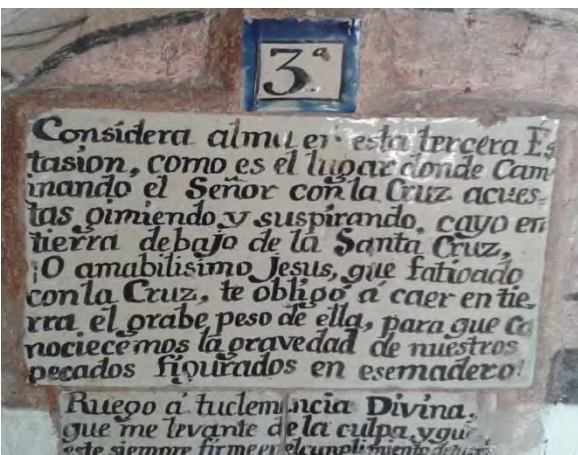 3ª
Considera alma en esta tercera Es
tasion, como es el lugar donde Cam
inando el Señor con la Cruz acues-
tas gimiendo y suspirando, cayo en
tierra debajo de la Santa Cruz,
¡O amabilisimo Jesus, que fatigado
con la Cruz, te obligó á caer en tie-
rra el grabe peso de ella, para que co
nociecemos la gravedad de nuestros
pecados figurados en esemadero!
Ruego á tuclemencia Divina,
que me levante de la culpa, y que
este siempre firme en el cumplimiento de